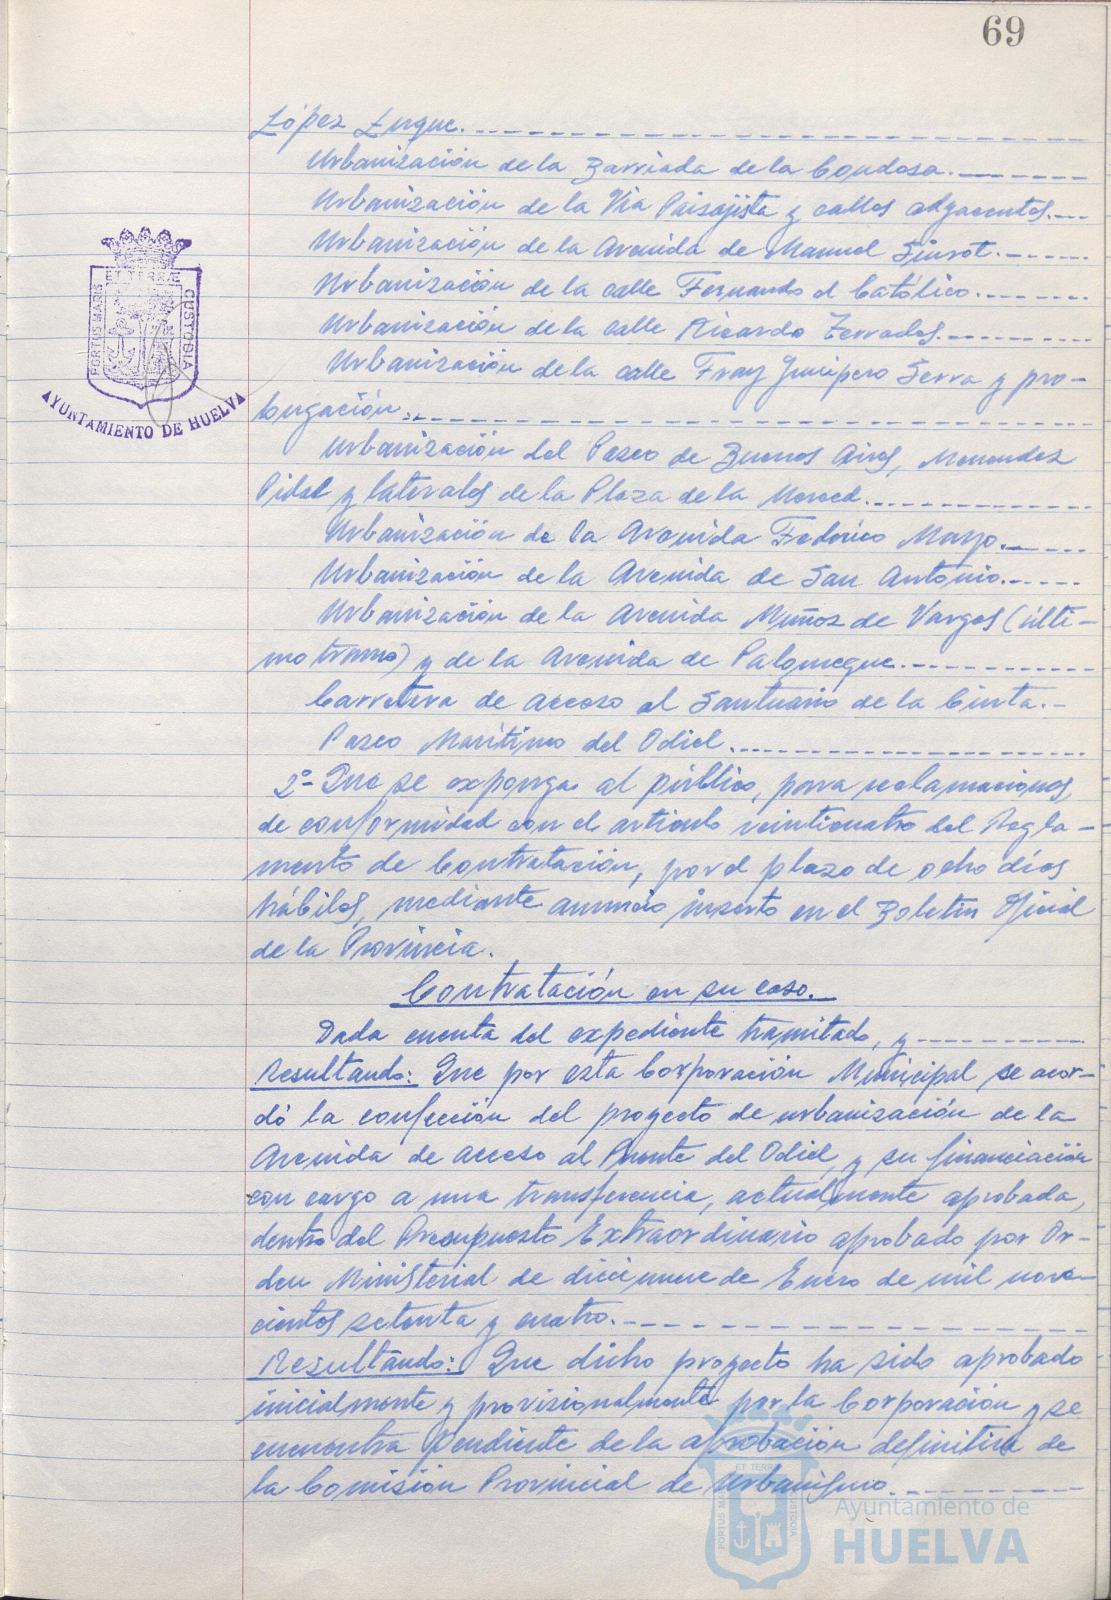 69
López Luque.
Urbanización de la Barriada de la Condosa.
Urbanización de la Via Paisajista y calles adyacentes.
Urbanización de la Avenida de Manuel Siurot.
Urbanización de la calle Fernando el Católico.
Urbanización de la calle Ricardo Terrades.
Urbanización de la calle Fray Junípero Serra y pro-
longación.
Urbanización del Paseo de Buenos Aires, Menendez
Pidal y laterales de la Plaza de la Merced.
Urbanización de la Avenida Federico Mayo.
Urbanización de la Avenida de San Antonio.
Urbanización de la Avenida Muñoz de Vargas (últi-
mo tramo) y de la Avenida de Palomeque.
Carretera de acceso al Santuario de la Cinta.
Paseo Marítimo del Odiel.
2º- Que se exponga al público, para reclamaciones,
de conformidad con el artículo veinticuatro del Regla-
mento de Contratación, por el plazo de ocho días
hábiles, mediante anuncio inserto en el Boletín Oficial
de la Provincia.
Contratación en su caso.
Dada cuenta del expediente tramitado, y
Resultando: Que por esta Corporación Municipal se acor-
dó la confección del proyecto de urbanización de la
Avenida de acceso al Puente del Odiel, y su financiación
con cargo a una transferencia, actualmente aprobada,
dentro del Presupuesto Extraordinario aprobado por Or-
den Ministerial de diecinueve de Enero de mil nove-
cientos setenta y cuatro.
Resultando: Que dicho proyecto ha sido aprobado
inicialmente y provisionalmente por la Corporación y se
encuentra pendiente de la aprobación definitiva de
la Comisión Provincial de Urbanismo.
PORTUS MARIS ET TERRAE CUSTODIA
AYUNTAMIENTO DE HUELVA
PORTUS MARIS ET TERRAE CUSTODIA
Ayuntamiento de
HUELVA